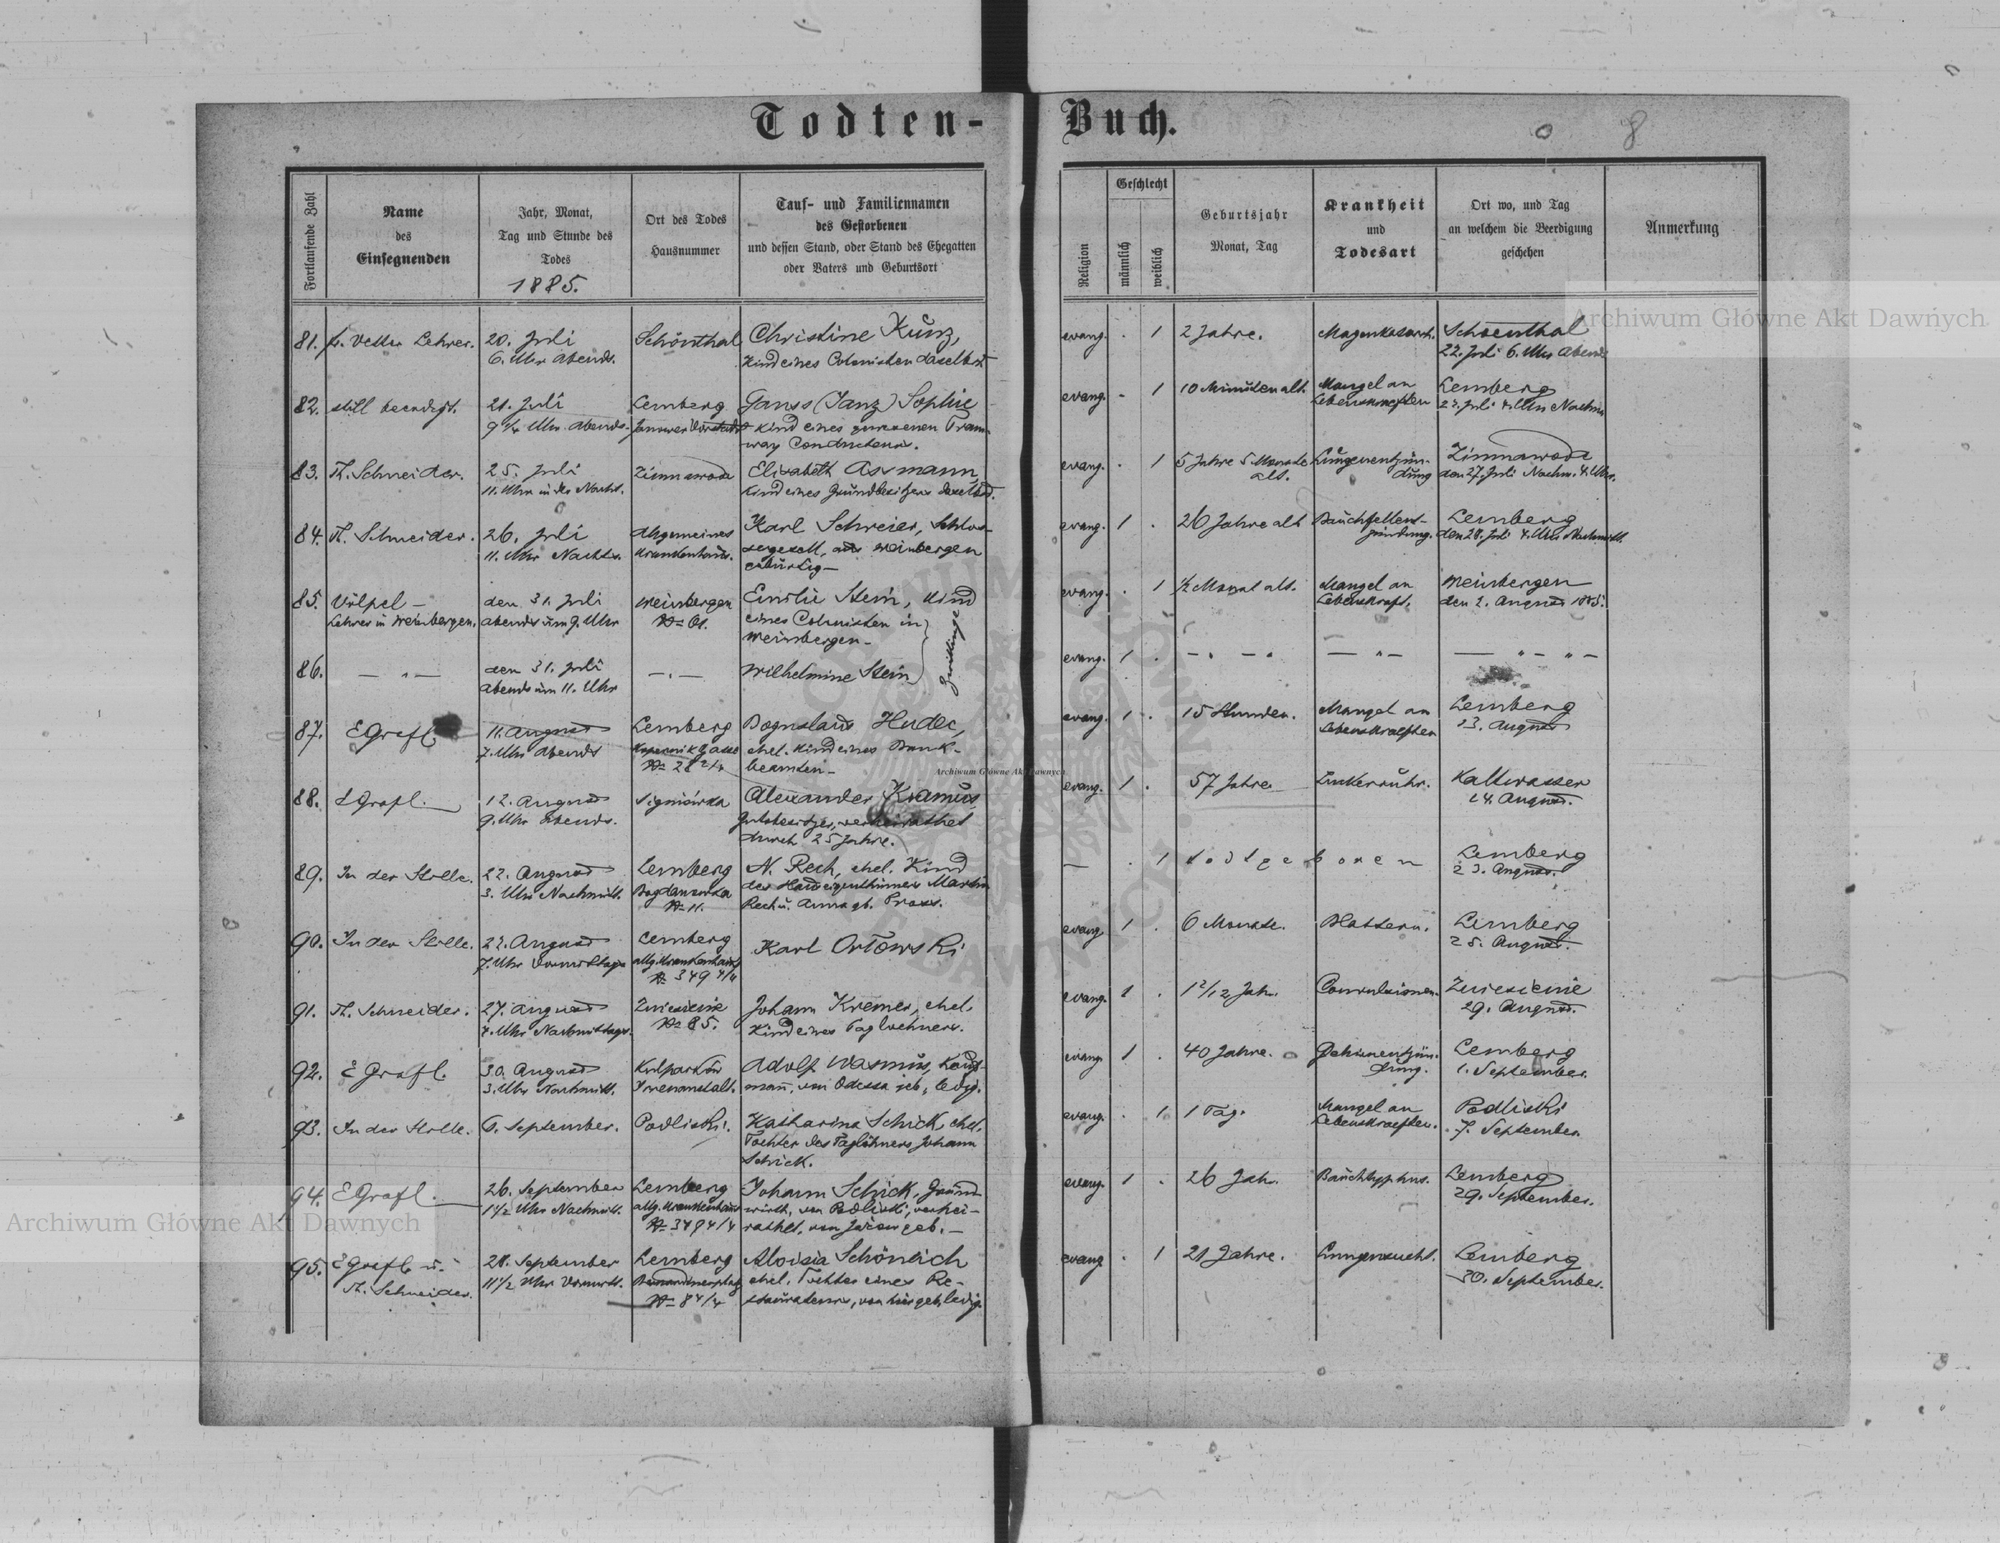 Todten-Buch.
8
Fortlaufende Zahl
Name
des
Einsegnenden
Jahr, Monat,
Tag und Stunde des
Todes
1885.
Ort des Todes
Hausnummer
Tauf- und Familiennamen
des Gestorbenen
und dessen Stand, oder Stand des Ehegatten
oder Vaters und Geburtsort
Religion
Geschlecht
männlich
weiblich
Geburtsjahr
Monat, Tag
Krankheit
und
Todesart
Ort wo, und Tag
an welchem die Beerdigung
geschehen
Anmerkung
81. Vetter Lehrer.
20. Juli
6. Uhr Abends.
Schönthal
Christine Kunz,
Kind eines Colonisten daselbst
evang. . 1
2 Jahre.
Magenkatarrh.
Schoenthal
22. Juli 6. Uhr Abends
82. still beerdigt.
21. Juli
9 1/4 Uhr Abends.
Lemberg
Janower Vorstadt
Ganss (Janz) Sophie
Kind eines gewesenen Tram-
way Conducteurs.
evang. - 1
10 Minuten alt.
Mangel an
Lebenskraeften
Lemberg
Juli 4. Uhr Nachm.
83. Th. Schneider.
25. Juli
11. Uhr in der Nacht.
Zimnawoda
Elisabeth Assmann,
Kind eines Grundbesitzers daselbst.
evang. . 1
5 Jahre 5 Monate
alt.
Lungenentzün-
dung
Zimnawoda
den 27. Juli Nachm. 4. Uhr.
84. Th. Schneider.
26. Juli
11. Uhr Nachts.
Allgemeines
Krankenhaus.
Karl Schreier, Schlos-
sergesell, aus Weinbergen
gebürtig—
evang. 1 .
26 Jahre alt
Bauchfellent-
zündung.
Lemberg
den 28. Juli 4. Uhr Nachmitt.
85. Völpel —
Lehrer in Weinbergen.
den 31. Juli
abends um 9. Uhr
Weinbergen
№ 61.
Emilie Stein, Kind
eines Colonisten in
Weinbergen—
Zwillinge
evang. . 1
1/2 Monat alt.
Mangel an
Lebenskraft.
Weinbergen
den 2. August 1885.
86. — „ —
den 31. Juli
Abends um 11. Uhr
— „ —
Wilhelmine Stein
evang. 1 .
— „ — „
— „ —
— „ — „ —
87. E Grafl
11. August
7. Uhr Abends
Lemberg
Kopernik Gasse
№ 28 2/4
Boguslaus Hudec,
ehel. Kind eines Bank-
beamten—
evang. 1 .
15 Stunden.
Mangel an
Lebenskraeften
Lemberg
13. August
88. E Grafl.
12. August
9. Uhr Abends.
Sigmówka
Alexander Kramus
Gutsbesitzer, verheirathet
durch 25 Jahre.
evang. 1 .
57 Jahre.
Zuckerruhr.
Kaltwasser
14. August.
89. In der Stille.
22. August
3. Uhr Nachmitt.
Lemberg
Bogdanowka
№ 11.
N. Rech, ehel. Kind
des Hauseigenthümers Martin
Rech u. Anna gb.
— . 1
todtgeboren
Lemberg
23. August.
90. In der Stille.
22. August
7. Uhr Vormittags
Lemberg
allg. Krankenhaus
№ 349 4/4
Karl Orłowski
evang. 1 .
6 Monate.
Blattern.
Lemberg
25. August.
91. Th. Schneider.
27. August
4. Uhr Nachmittags.
Zniesienie
№ 85.
Johann Kremer, ehel.
Kind eines Taglöhners.
evang. 1 .
1 2/12 Jahr.
Convulsionen.
Zniesienie
29. August.
92. E Grafl.
30. August
3. Uhr Nachmitt.
Kulparków
Irrenanstalt.
Adolf Wasmus, Kauf-
mann, von Odessa geb., ledig.
evang. 1 .
40 Jahre.
Gehirnentzün-
dung.
Lemberg
1. September.
93. In der Stille.
6. September.
Podliski.
Katharina Schick, ehel.
Tochter des Taglöhners Johann
Schick.
evang. . 1
1 Tag.
Mangel an
Lebenskraeften.
Podliski
7. September
94. E Grafl.
26. September
1 1/2 Uhr Nachmitt.
Lemberg
allg. Krankenhaus
№ 349 4/4
Johann Schick, Grund-
wirth, von Podliski, verhei-
rathet, von geb.—
evang. 1 .
26 Jah.
Bauchtyphus.
Lemberg
29. September.
95. E Grafl u.
Th. Schneider.
28. September
11 1/2 Uhr Vormitt.
Lemberg
Bernardinerplatz
№ 8 4/4
Aloisia Schönich
ehel. Tochter eines Re-
staurateurs, von hier geb., ledig.
evang . 1
21 Jahre.
Lungensucht.
Lemberg
30. September.
Archiwum Główne Akt Dawnych
Archiwum Główne Akt Dawnych
Archiwum Główne Akt Dawnych